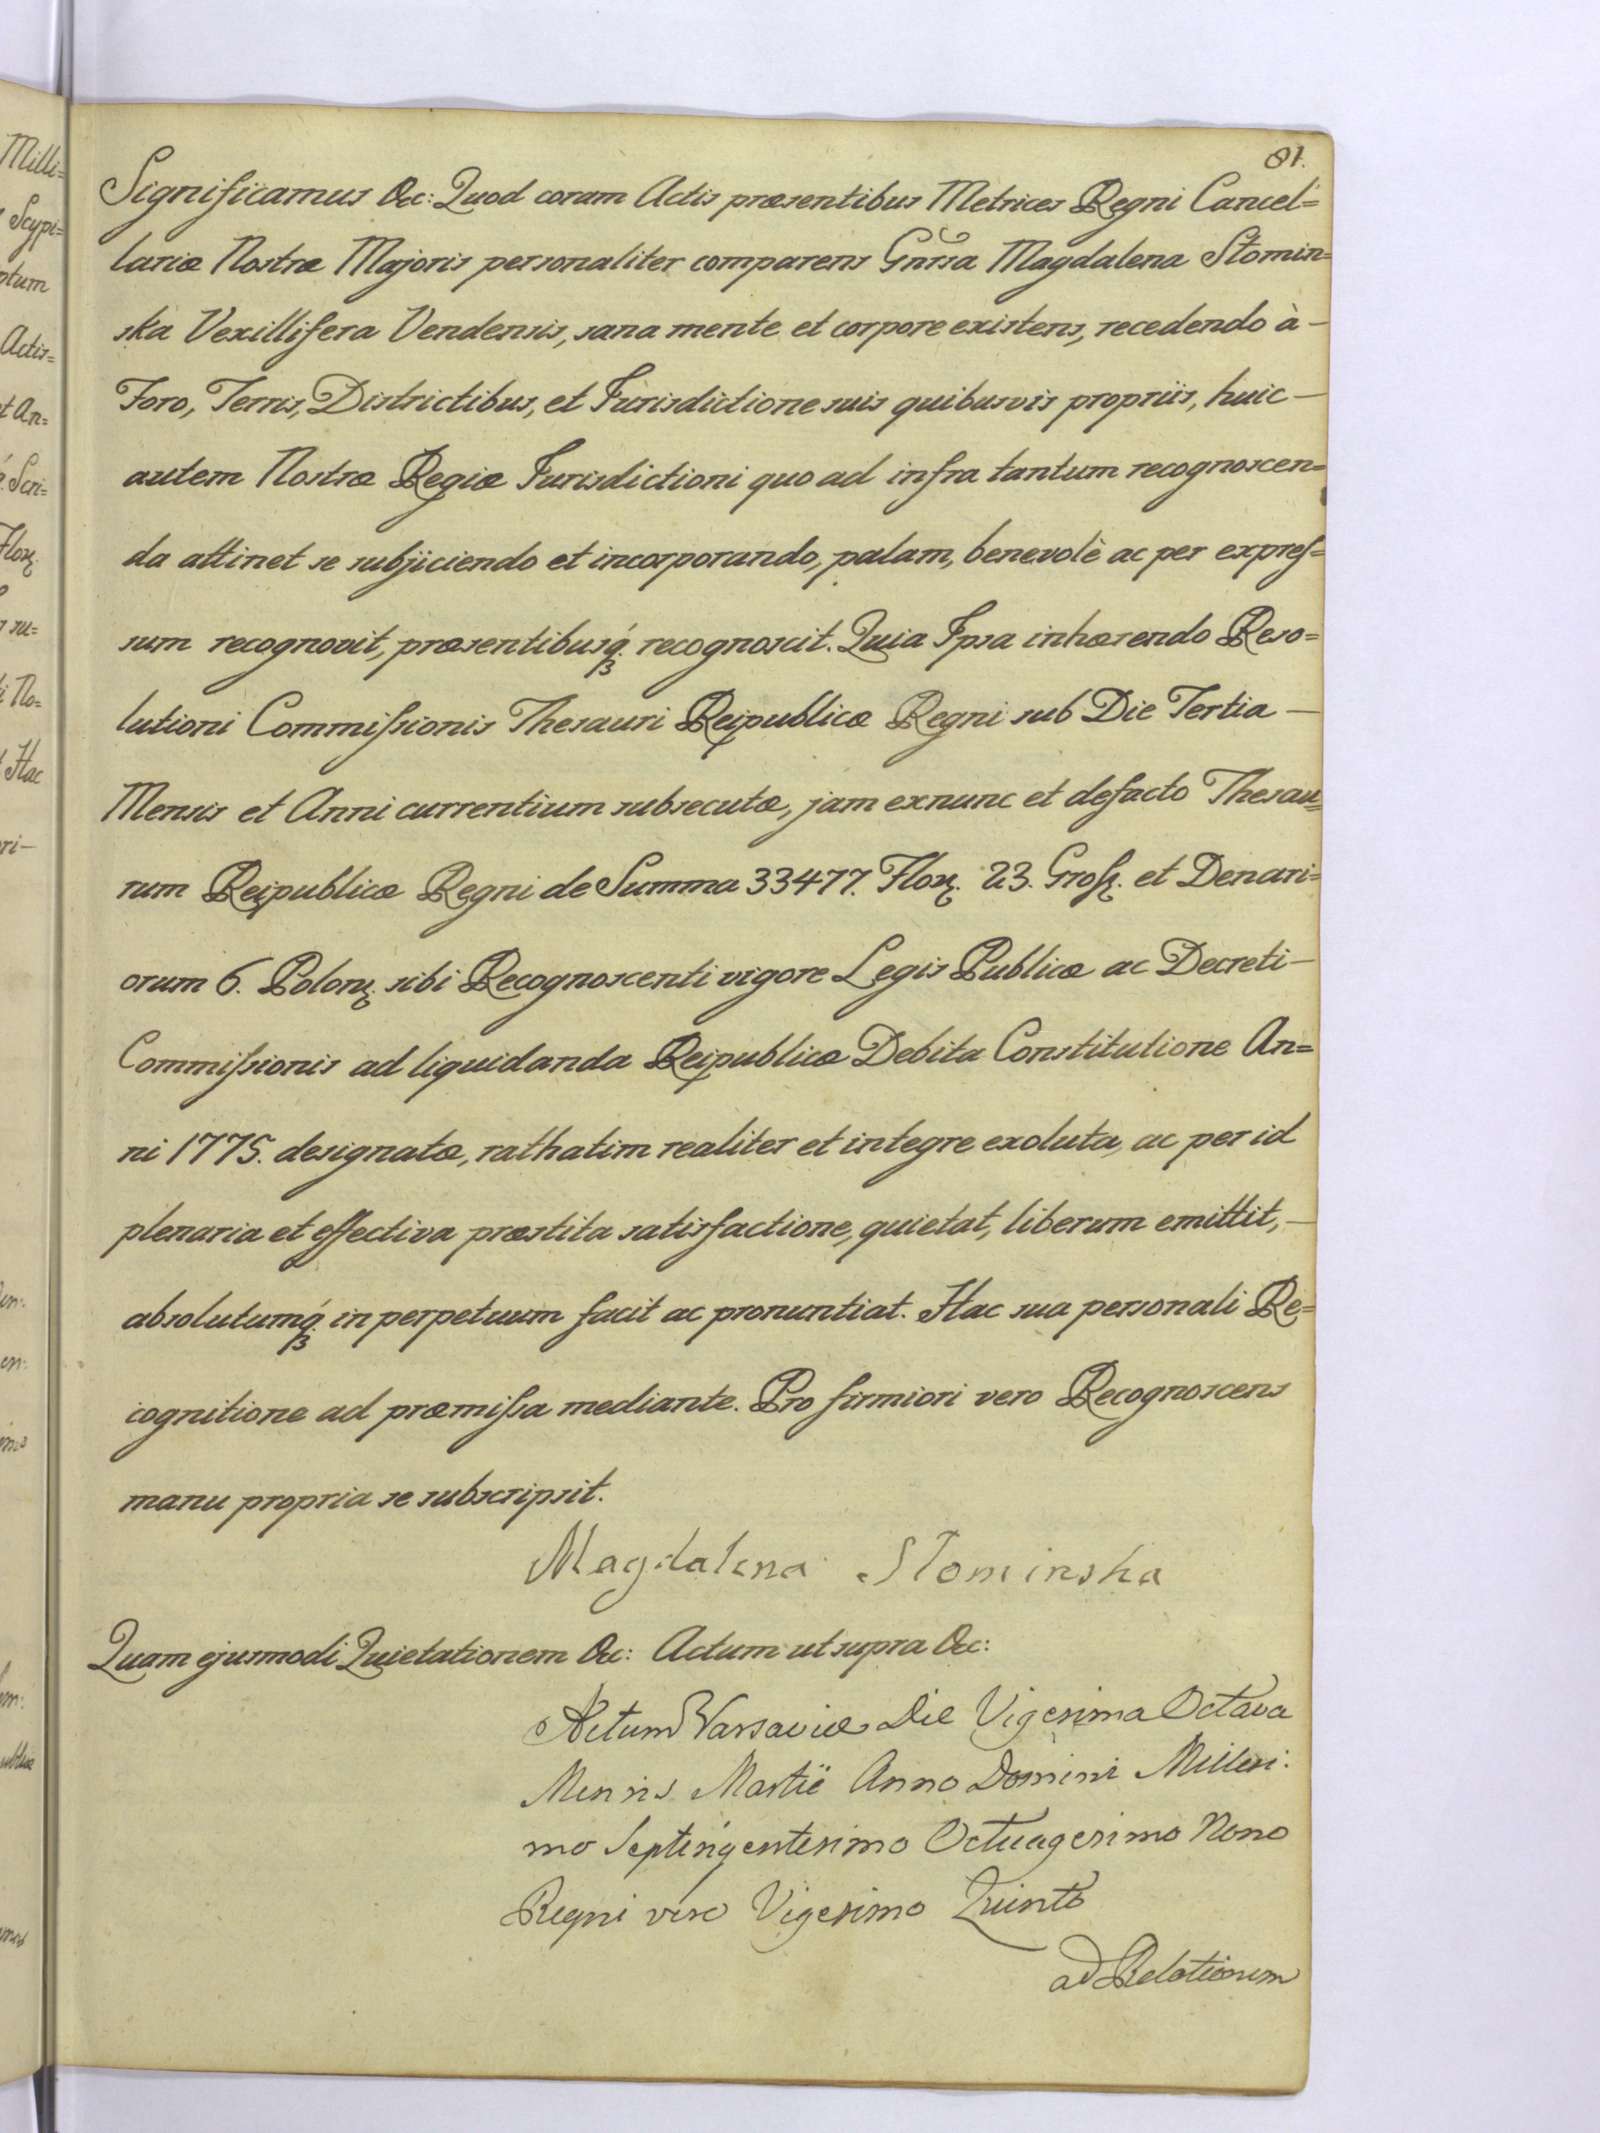 81.
Significamus &c: Quod coram Actis præsentibus Metrices Regni Cancel=
lariæ Nostræ Majoris personaliter comparens Gnrsa Magdalena Słomin=
ska Vexillifera Vendensis, sana mente et corpore existens, recedendo à —
Foro, Terris, Districtibus, et Jurisdictione suis quibusvis propriis, huic —
autem Nostræ Regiæ Jurisdictioni quo ad infra tantum recognoscen=
da attinet se subjiciendo et incorporando, palam, benevolè ac per expreſ=
sum recognovit, præsentibusq́ꝫ recognoscit. Quia Ipsa inhærendo Reso=
lutioni Commiſsionis Thesauri Reipublicæ Regni sub Die Tertia —
Mensis et Anni currentium subsecutæ, jam exnunc et defacto Thesau=
rum Reipublicæ Regni de Summa 33477. Floꝝ. 23. Groſꝝ. et Denari=
orum 6. Polonꝝ. sibi Recognoscenti vigore Legis Publicæ ac Decreti —
Commiſsionis ad liquidanda Reipublicæ Debita Constitutione An=
ni 1775. designatæ, rathatim realiter et integre exoluta, ac per id
plenaria et effectiva præstita satisfactione, quietat, liberum emittit, —
absolutumq́ꝫ in perpetuum facit ac pronuntiat. Hac sua personali Re=
cognitione ad præmiſsa mediante. Pro firmiori vero Recognoscens
manu propria se subscripsit.
Magdalena Słominska
Quam ejusmodi Quietationem &c: Actum ut supra &c:
Actum Varsaviæ Die Vigesima Octava
Mensis Martii Anno Domini Millesi:
mo Septingentesimo Octuagesimo Nono
Regni vero Vigesimo Quinto
ad Relationem